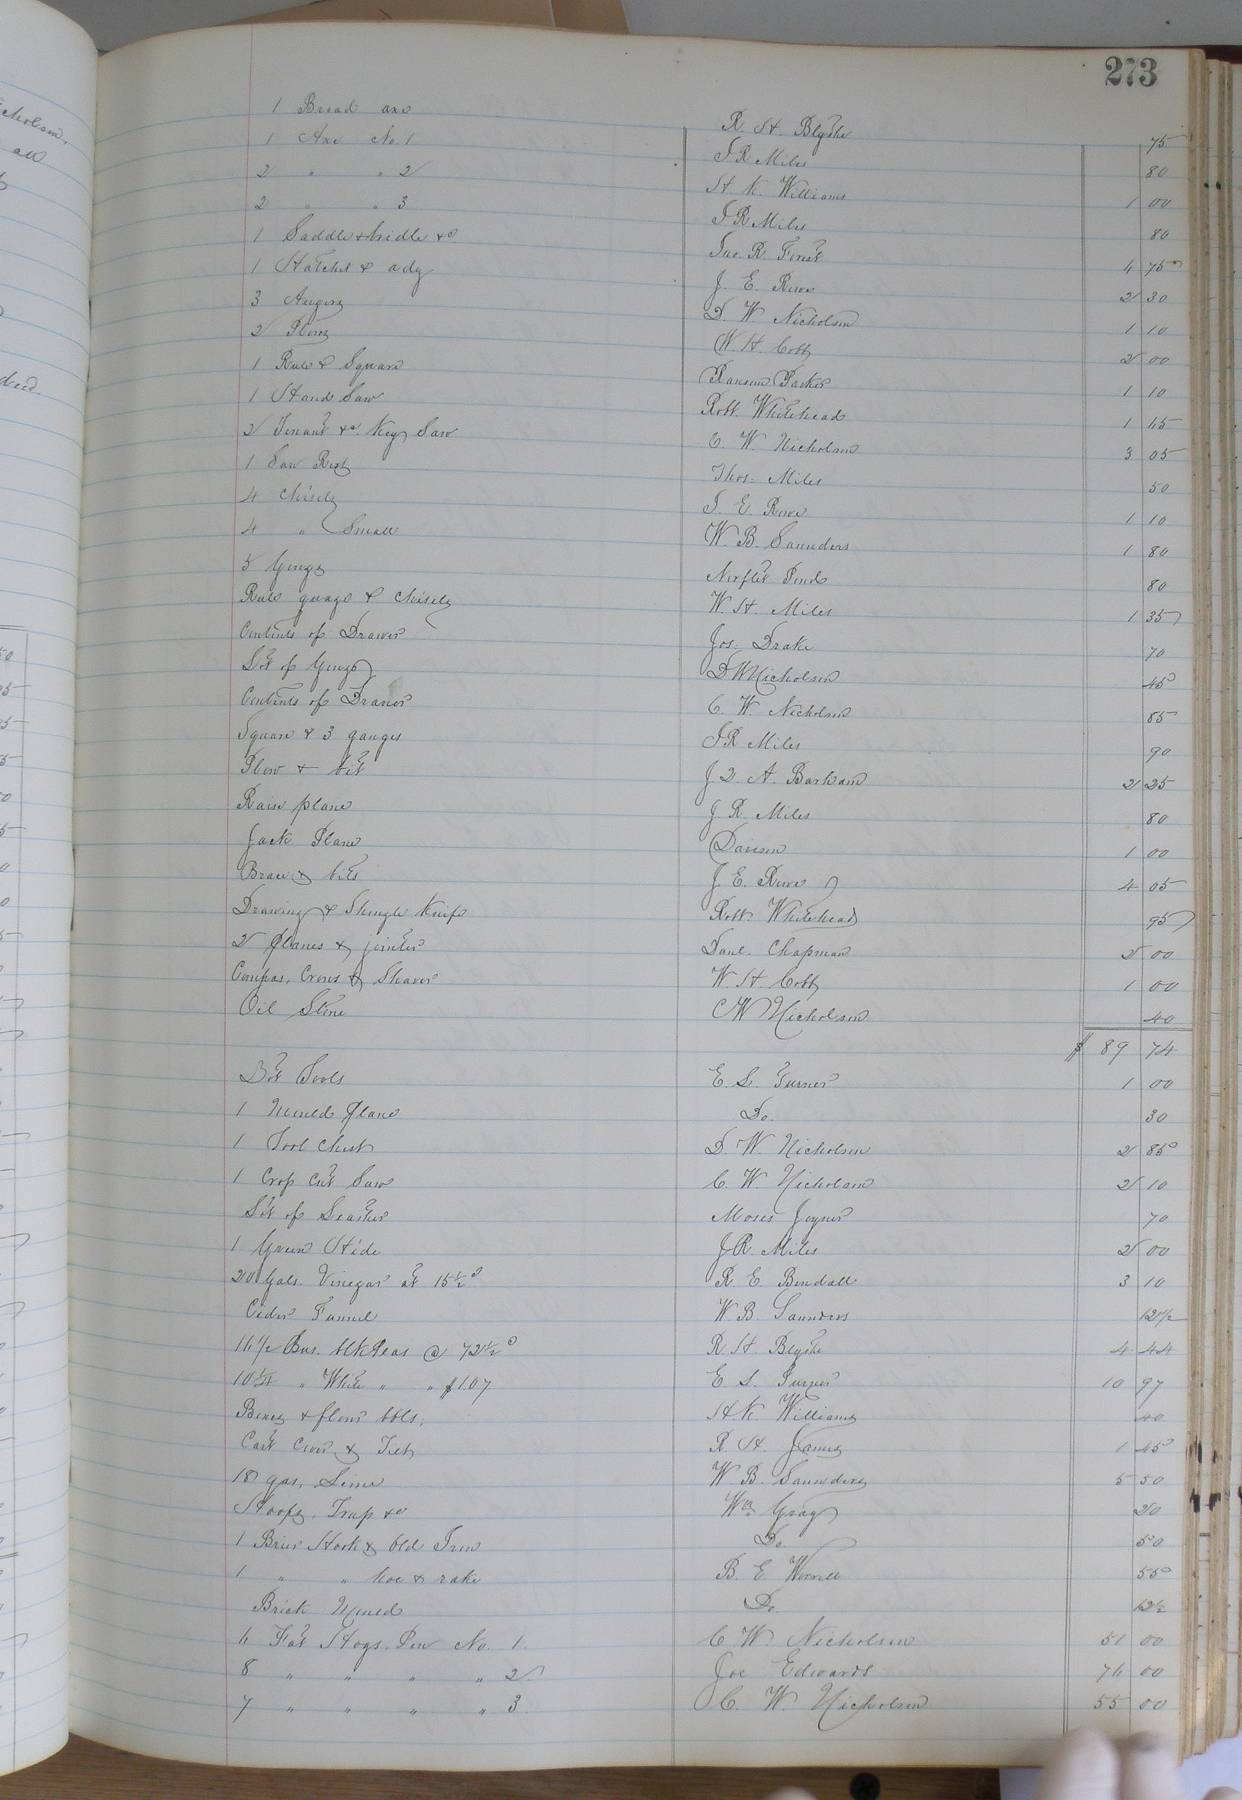 273
1 Broad axe R. H. Blythe 75
1 Axe No. 1 J R Miles 80
2 " " 2 H. K. Williams 1 00
2 " " 3 J R Miles 80
1 Saddle & bridle &c Jno. R. 4 75
1 Hatchet & adz J. E. Rowe 2 30
3 Augers D. W Nicholson 1 10
2 W. H. Cobb 2 00
1 Rule & Square Ransom Parker 1 10
1 Hand Saw Robt Whitehead 1 45
2 Tenant &c. Key Saw C. W. Nicholson 3 05
1 Saw Thos. Miles 50
4 Chisels J. E. Rowe 1 10
4 " Small W. B. Saunders 1 80
5 Gouges 80
Rule guage & Chisels W H. Miles 1 35
Contents of Drawer Jos. Drake 70
Lot of Gouges D W Nicholson 45
Contents of Drawer C. W. Nicholson 85
Square & 3 gauges J R Miles 90
Plow & bit J. Q. A. Barham 2 25
Rain plane J. R. Miles 80
Jack Plane Davison 1 00
Brace & bits J. E. Rowe 4 05
Drawing & Shingle Knife Robt Whitehead 95
2 planes & jointer Danl. Chapman 2 00
Compas, Crows & Shaver W H Cobb 1 00
Oil Stone C W Nicholson 40
$ 89 74
Lot Tools E. S. Turner 1 00
1 plane Do. 30
1 Tool Chest D. W. Nicholson 2 85
1 Crop Cut Saw C. W. Nicholson 2 10
Lot of Leather Moses Joyner 70
1 Green Hide J. R. Miles 2 00
20 Gals. Vinegar at 15½c R. E. Bendall 3 10
Cider Funnel W. B. Saunders 12½
Bus. blk Peas @ 72½c R H Blythe 4 44
10¼ " White " " $1.07 E. S. Turner 10 97
Boxes & flour bbls. H K. Williams 40
Cart & R. H. James 1 45
18 gas. Lime W B. Saunders 5 50
Hoops, Trap &c Wm Gray 20
1 Brier Hook & Old Iron Do. 50
1 " " hoe & rake B. E. Worrell 55
Brick Do. 12½
6 Fat Hogs. Pen No. 1. C. W. Nicholson 51 00
8 " " " " 2. Joe Edwards 76 00
7 " " " " 3. C. W. Nicholson 55 00